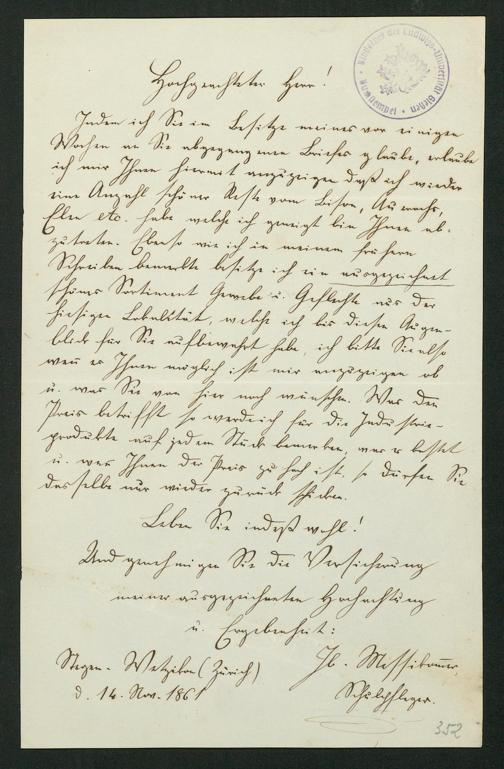 Hochgeachteter Herr!
Indem ich Sie im Besitze meines vor einigen
Wochen an Sie abgegangenen Briefes glaube, erlaube
ich mir Ihnen hiermit anzuzeigen daß ich wieder
eine Anzahl schöner Reste vom Bison, Auerochs,
Elen etc. habe welche ich geneigt bin Ihnen ab-
zutreten. Ebenso wie ich in meinem frühern
Schreiben bemerkte besitze ich ein ausgezeichnet
schönes Sortiment Gewebe u. Geflechte aus der
hiesigen Lokalität, welche ich bis diesen Augen-
blick für Sie aufbewahrt habe, ich bitte Sie also
wenn es Ihnen möglich ist mir anzuzeigen ob
u. was Sie von hier noch wünschen. Was den
Preis betrifft so werde ich für die Industrie-
produkte auf jedem Stück bemerken, was es kostet
u. was Ihnen der Preis zu hoch ist, so dürfen Sie
dasselbe nur wieder zurück schicken.
Leben Sie indeß wohl!
Und genehmigen Sie die Versicherung
meiner ausgezeichneten Hochachtung
u. Ergebenheit:
Stegen-Wetzikon (Zürich) Jb. Messikommer,
d. 14. Nov. 1861 Schulpfleger.
352